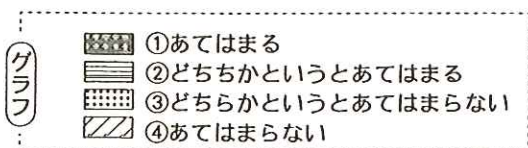 グラフ
①あてはまる
②どちちかというとあてはまる
③どちらかというとあてはまらない
④あてはまらない